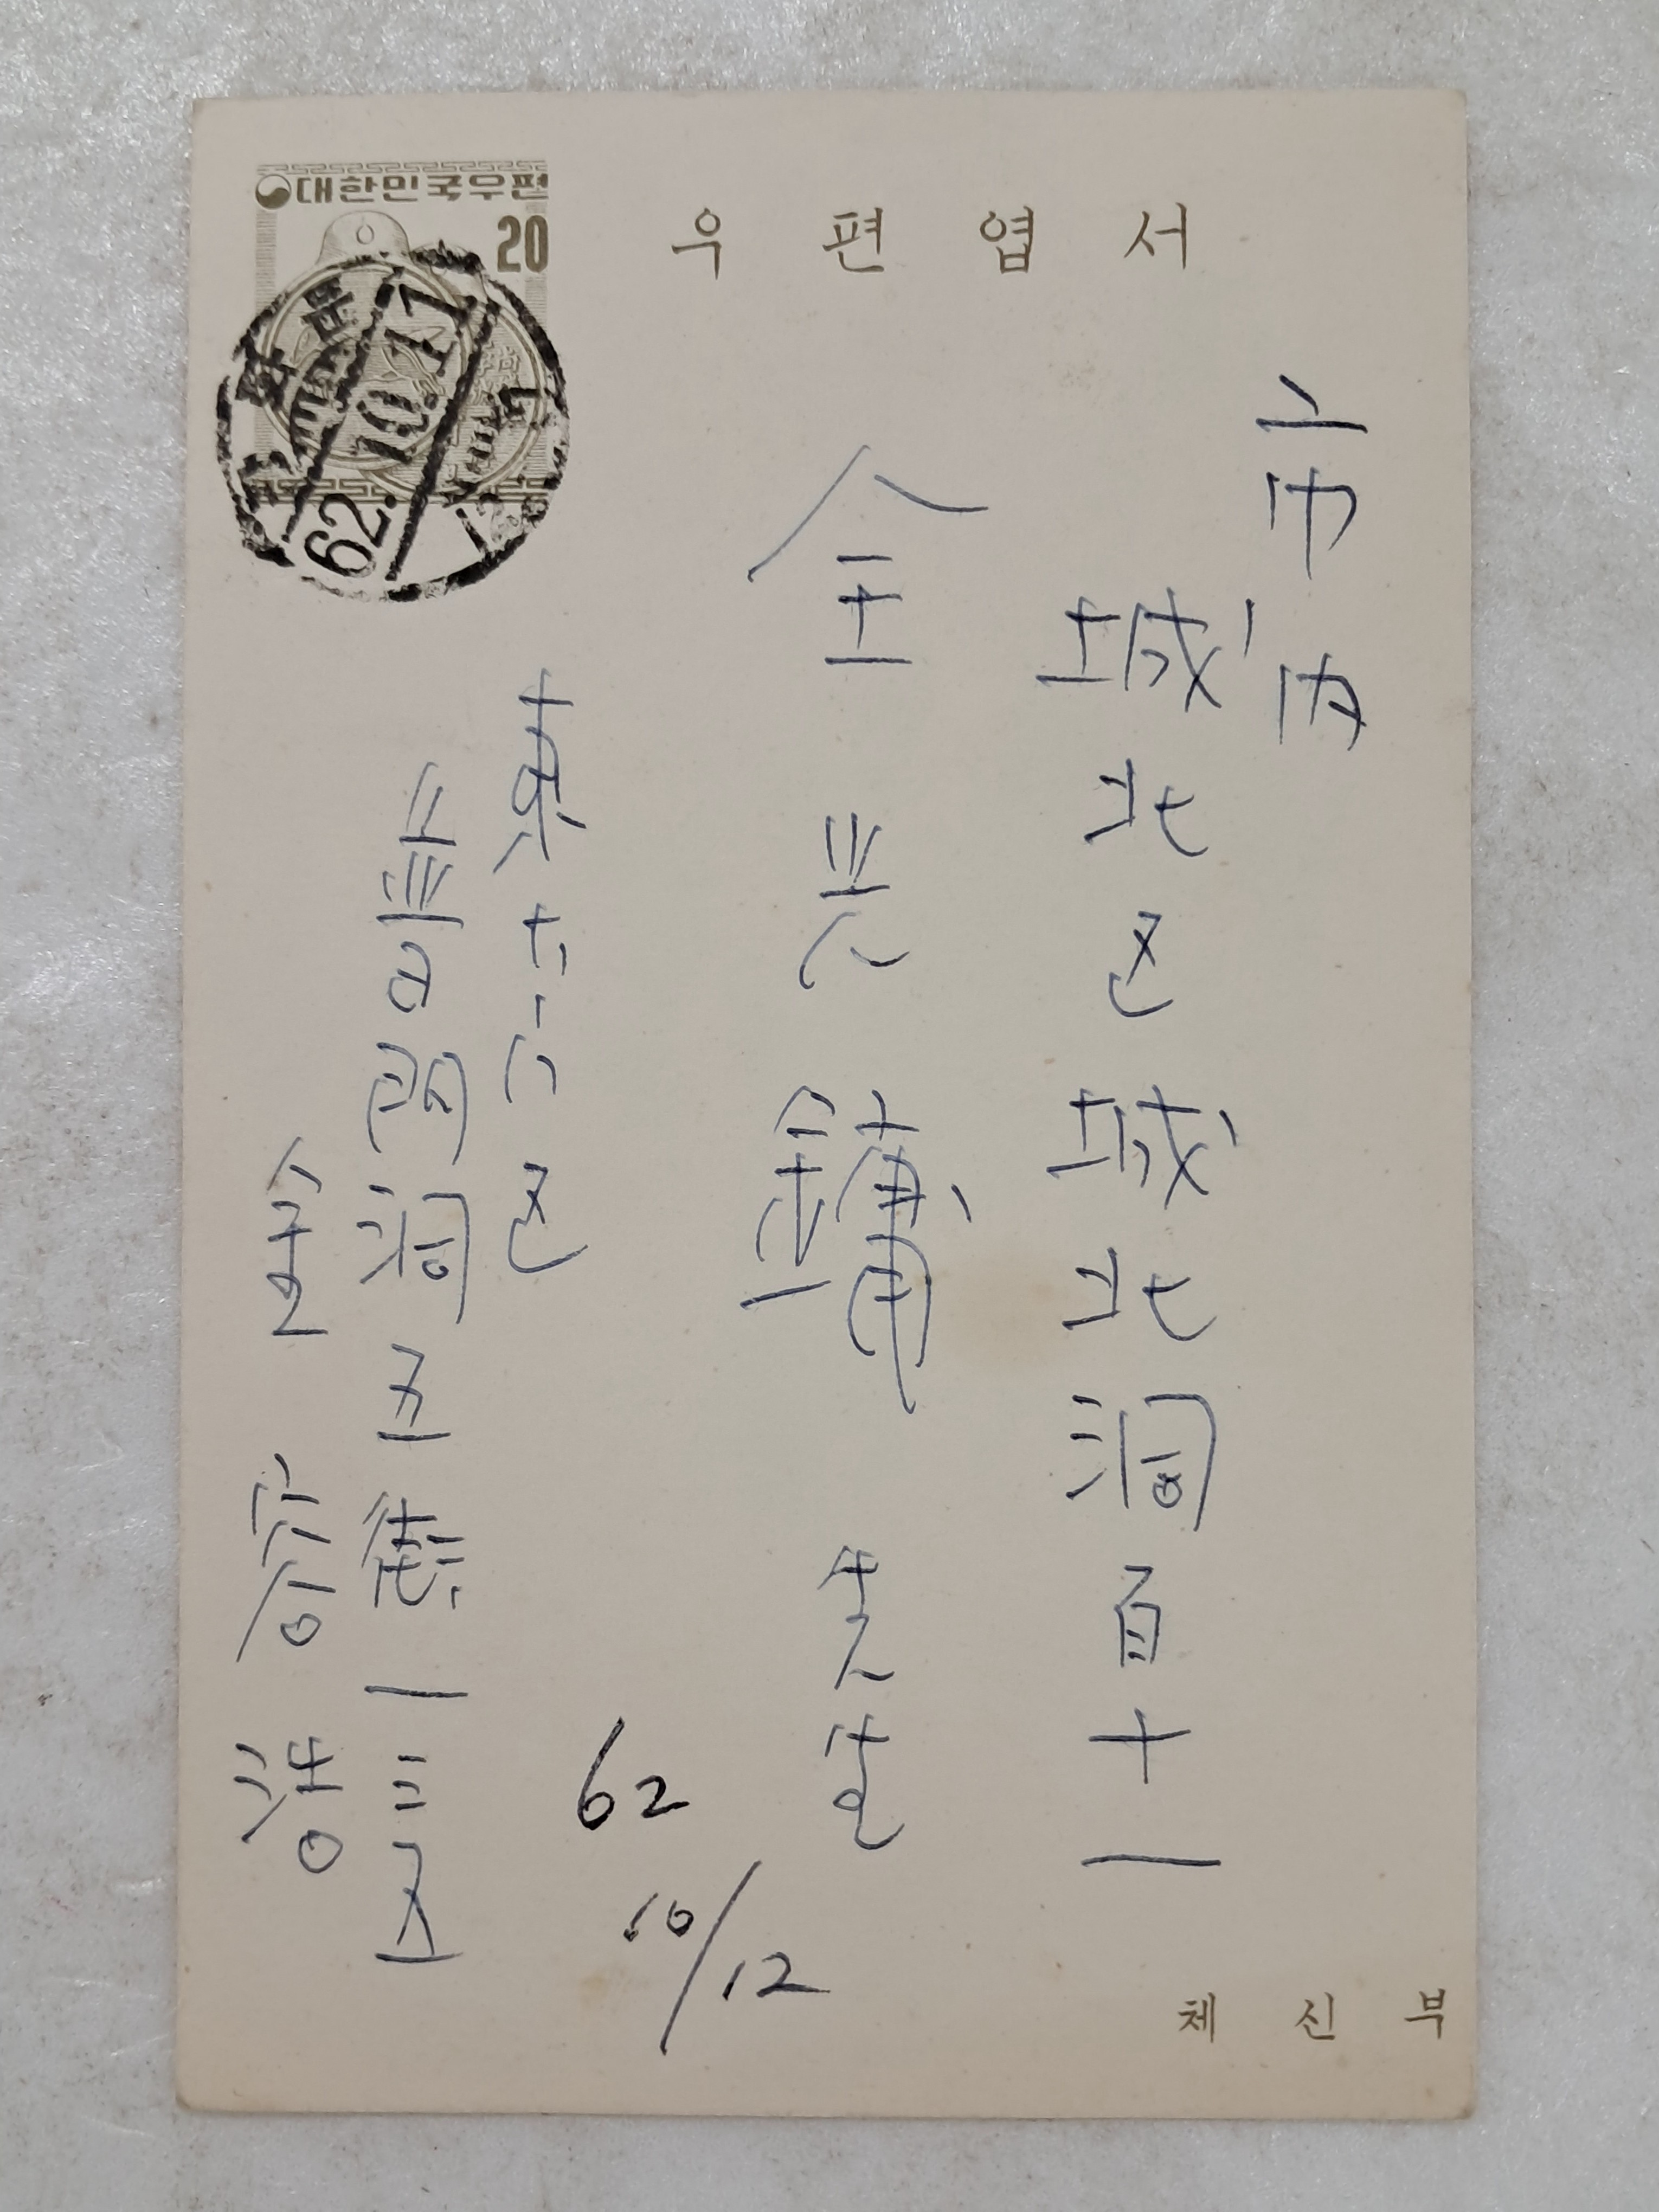 대한민국우편
20
우편엽서
62.10.11
市内
城北区城北洞百十一
全光鏞先生
東大门区
普門洞五街一二五
金容浩
62
10/12
체신부